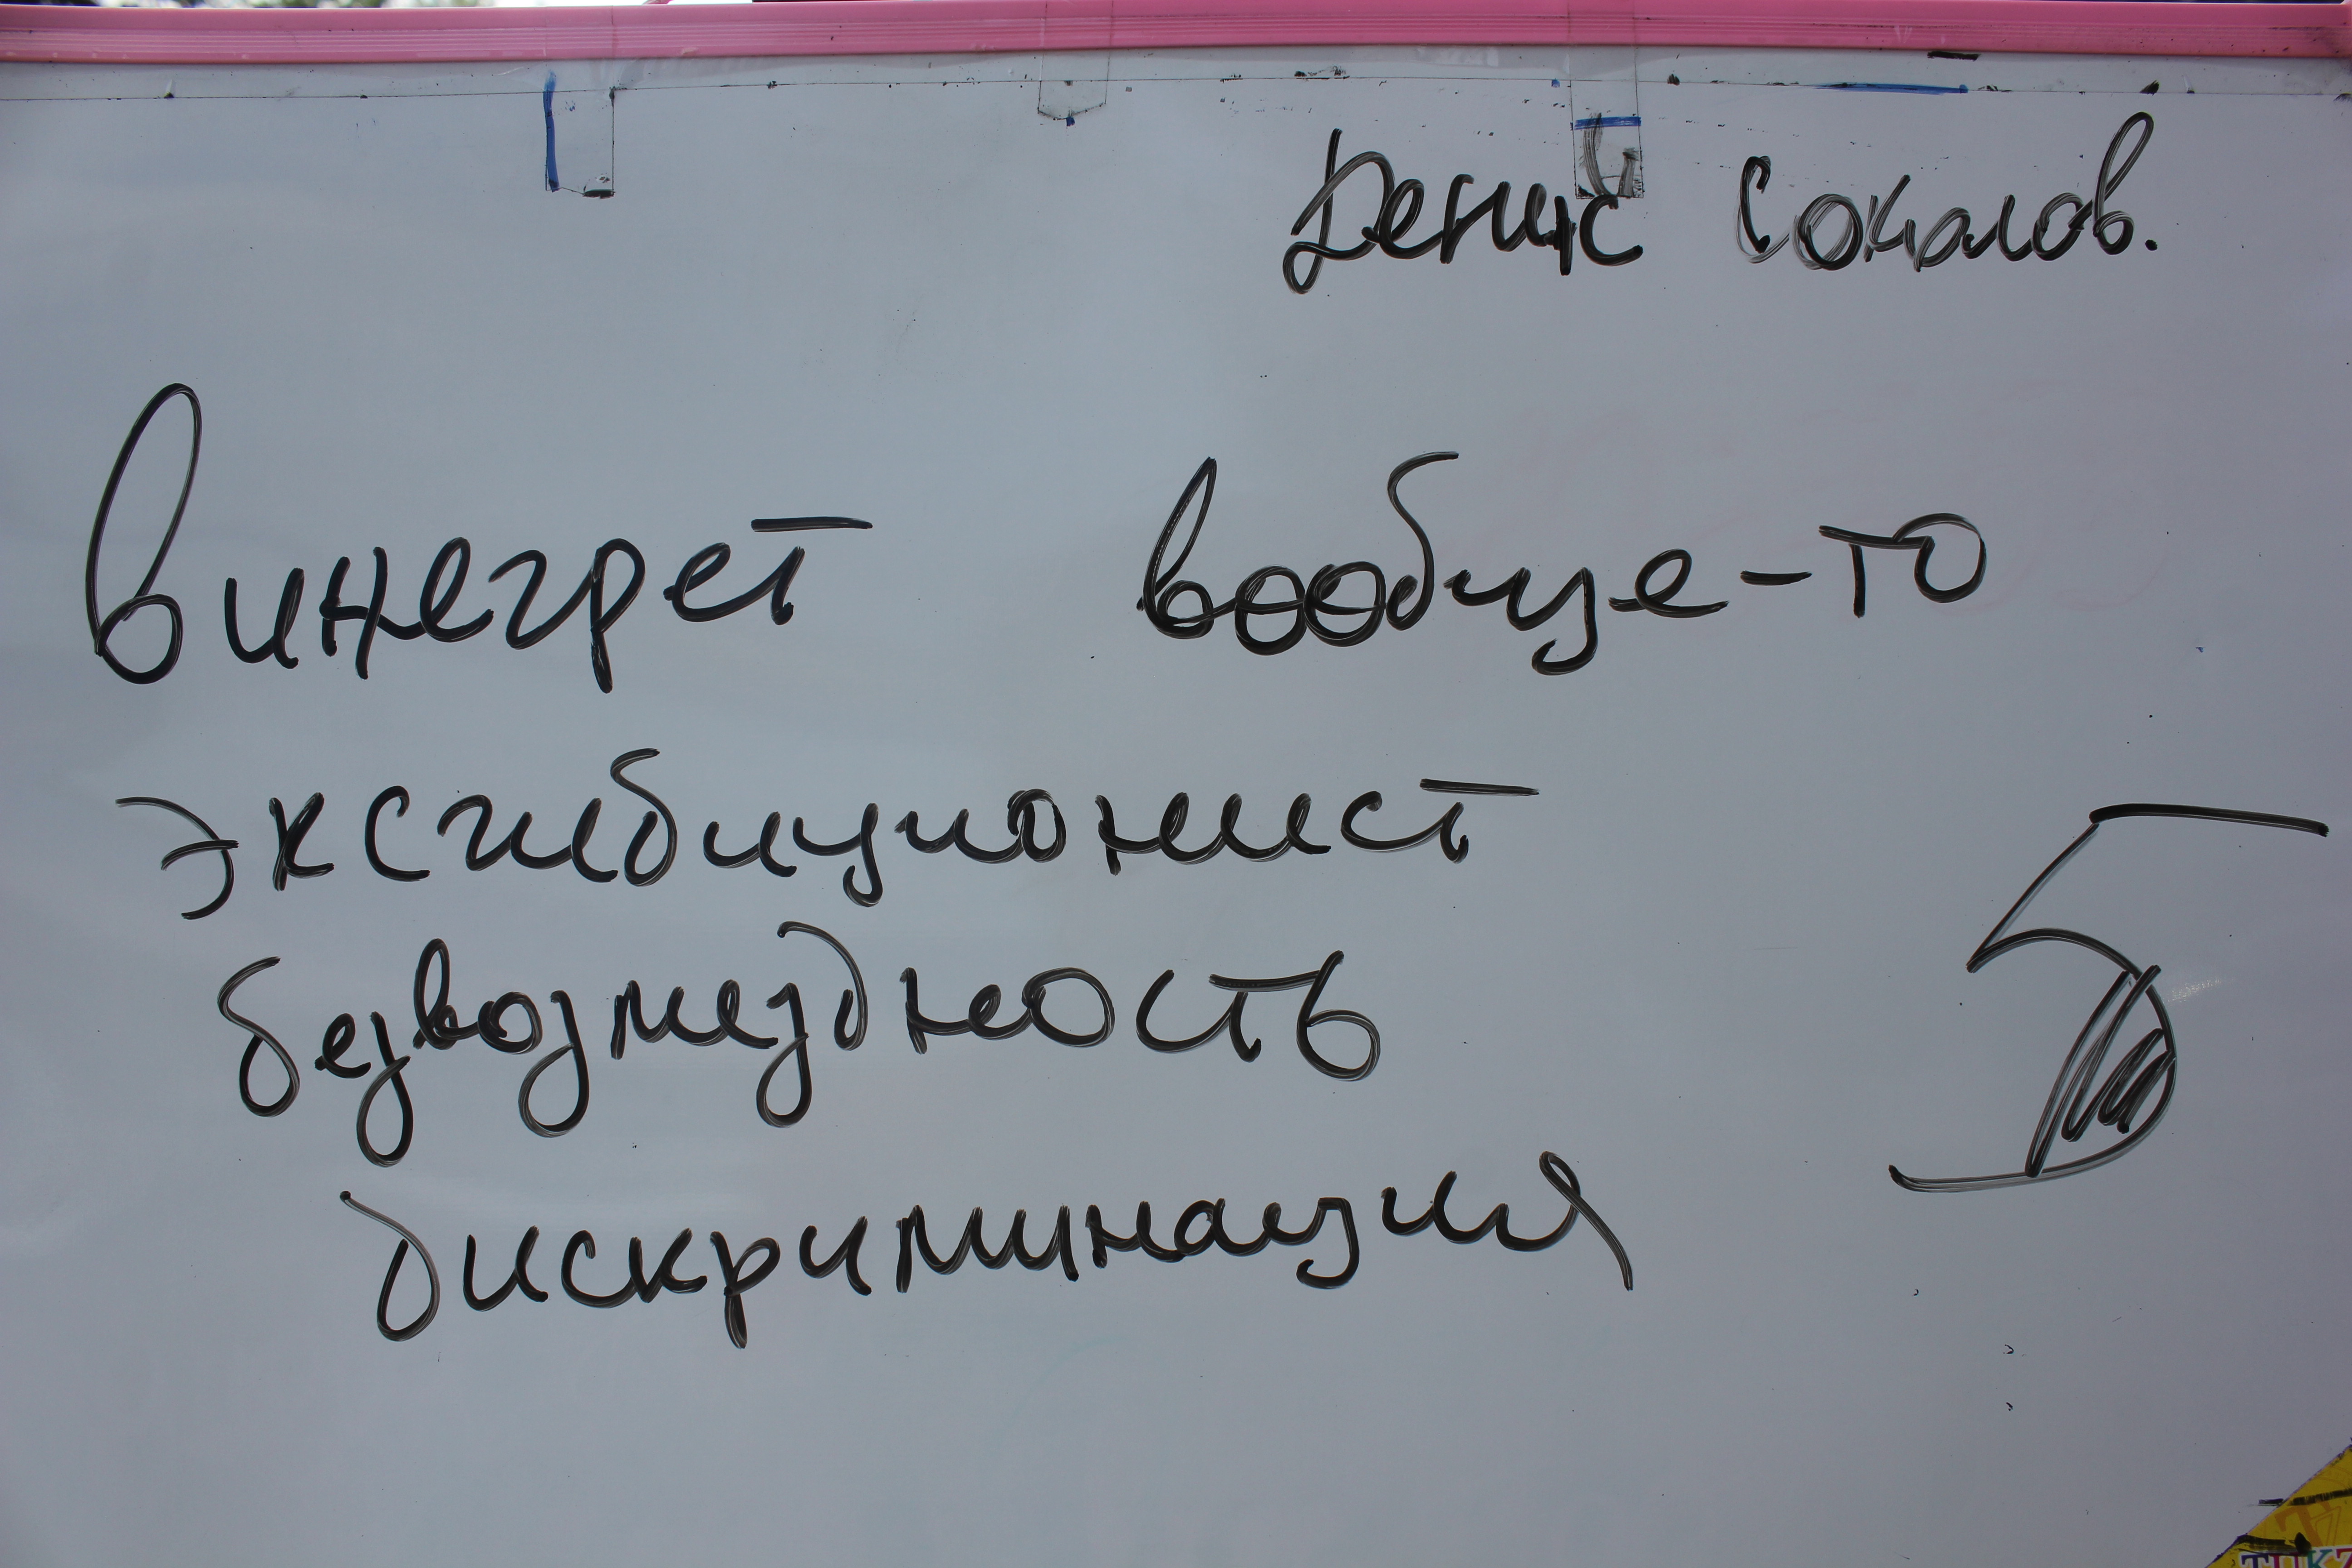 Денис Соколов.
винегрет вообще-то
эксгибиционист
безвозмездность
5
дискриминация